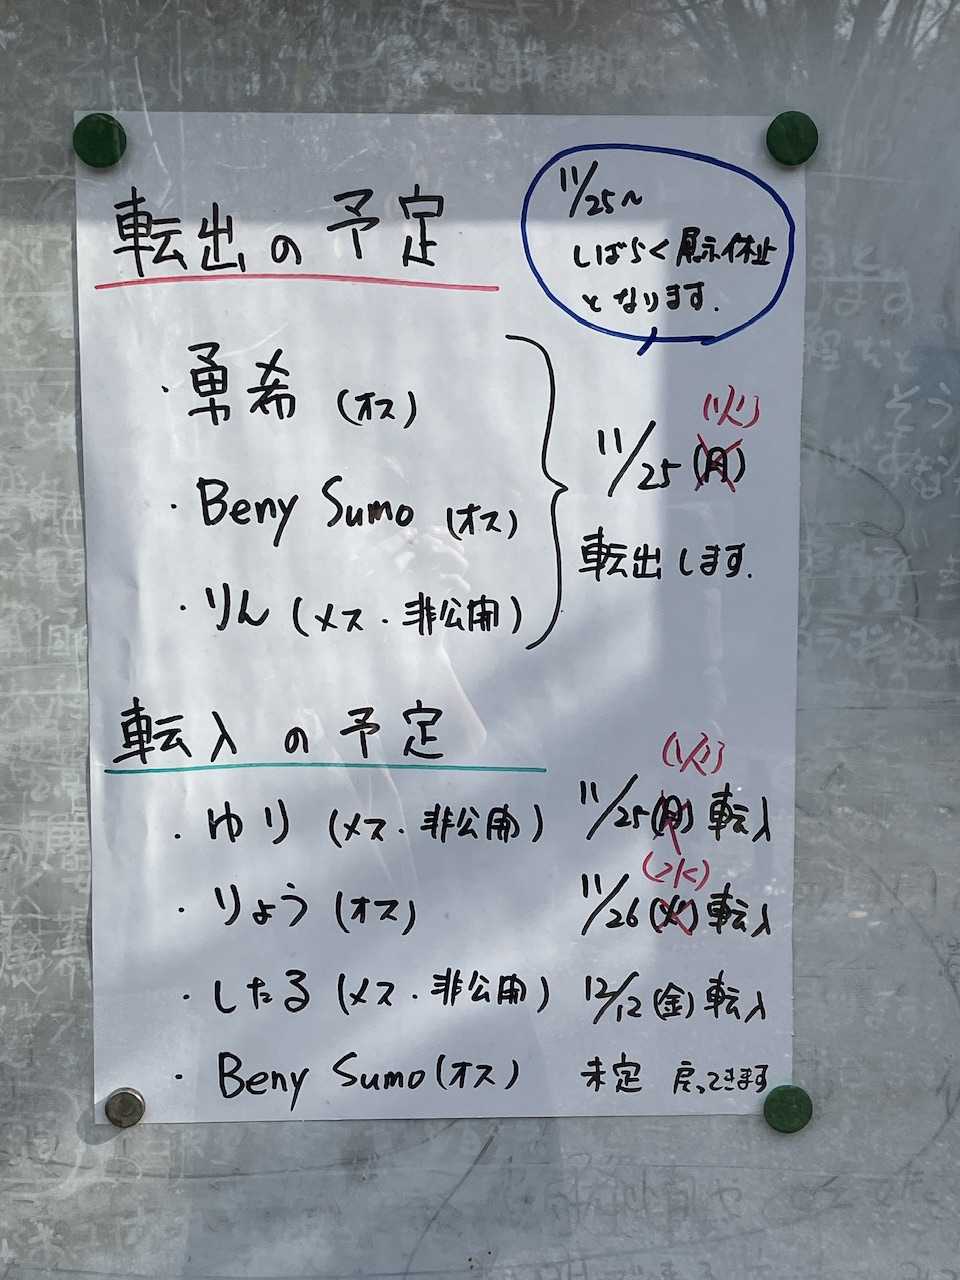 転出の予定
11/25～
しばらく展示休止
となります.
・勇希 (オス)
・Beny Sumo (オス)
・りん (メス・非公開)
(火)
11/25 (月)
転出します.
転入の予定
(火)
・ゆり (メス・非公開) 11/25(月) 転入
(水)
・りょう (オス) 11/26(火) 転入
・したる (メス・非公開) 12/12(金) 転入
・Beny Sumo (オス) 未定 戻ってきます